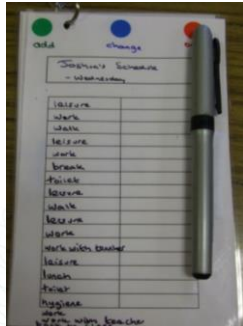 add change
Joshua's Schedule
- Wednesday
leisure
work
walk
leisure
work
break
toilet
leisure
walk
leisure
work
work with teacher
leisure
lunch
toilet
hygiene
work
work with teacher